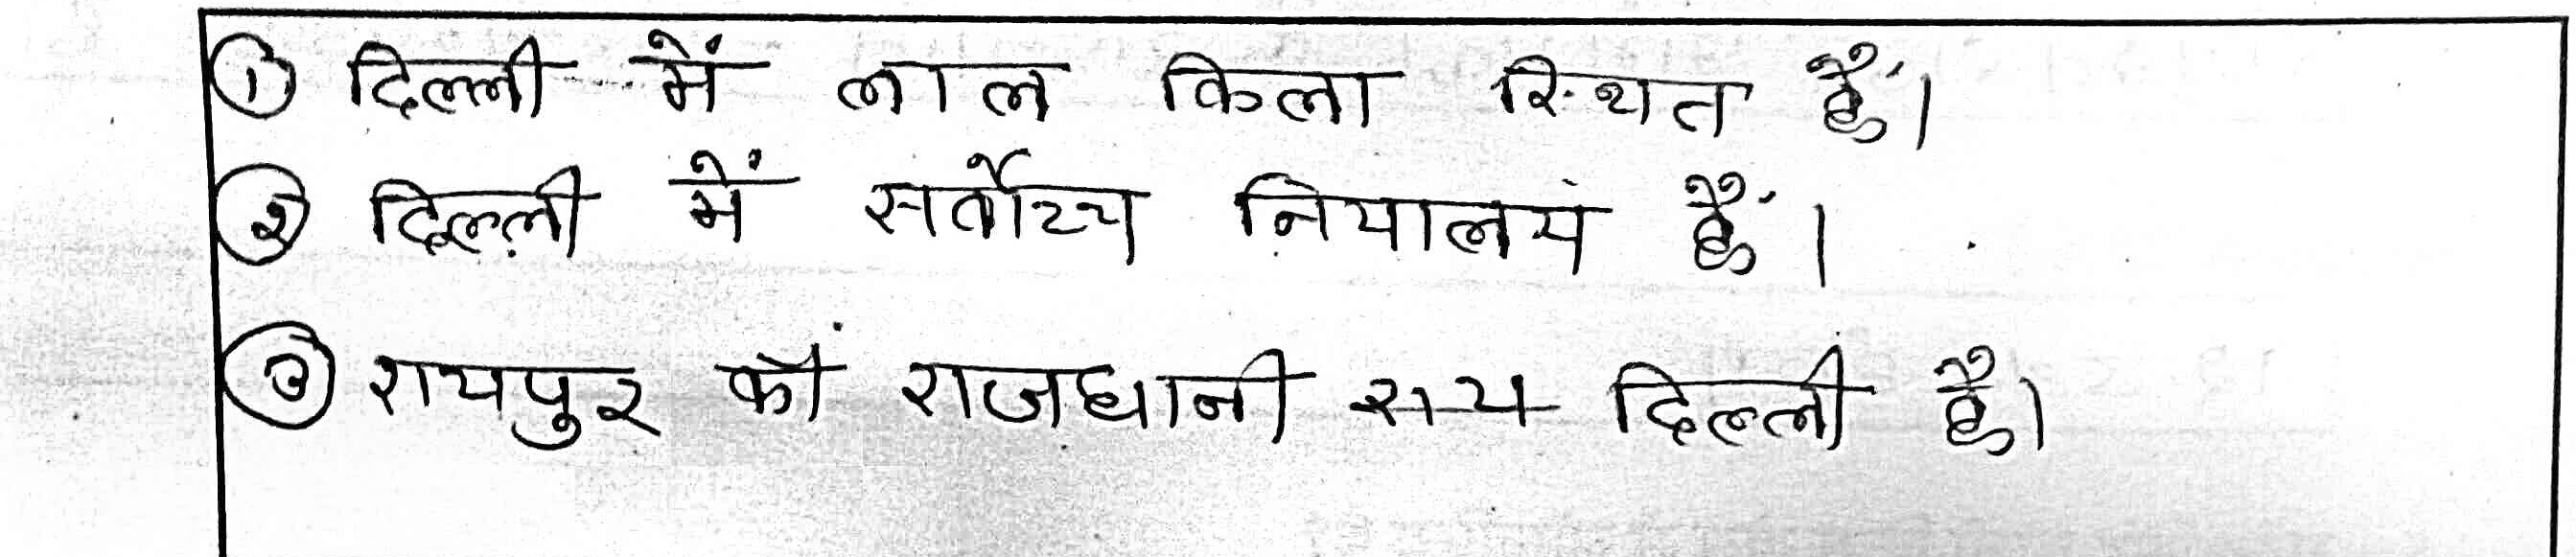 ① दिल्ली में लाल किला स्थित हैं।
② दिल्ली में सर्तोच्च नियालयं हैं।
③ रायपुर की राजधानी राय दिल्ली है।